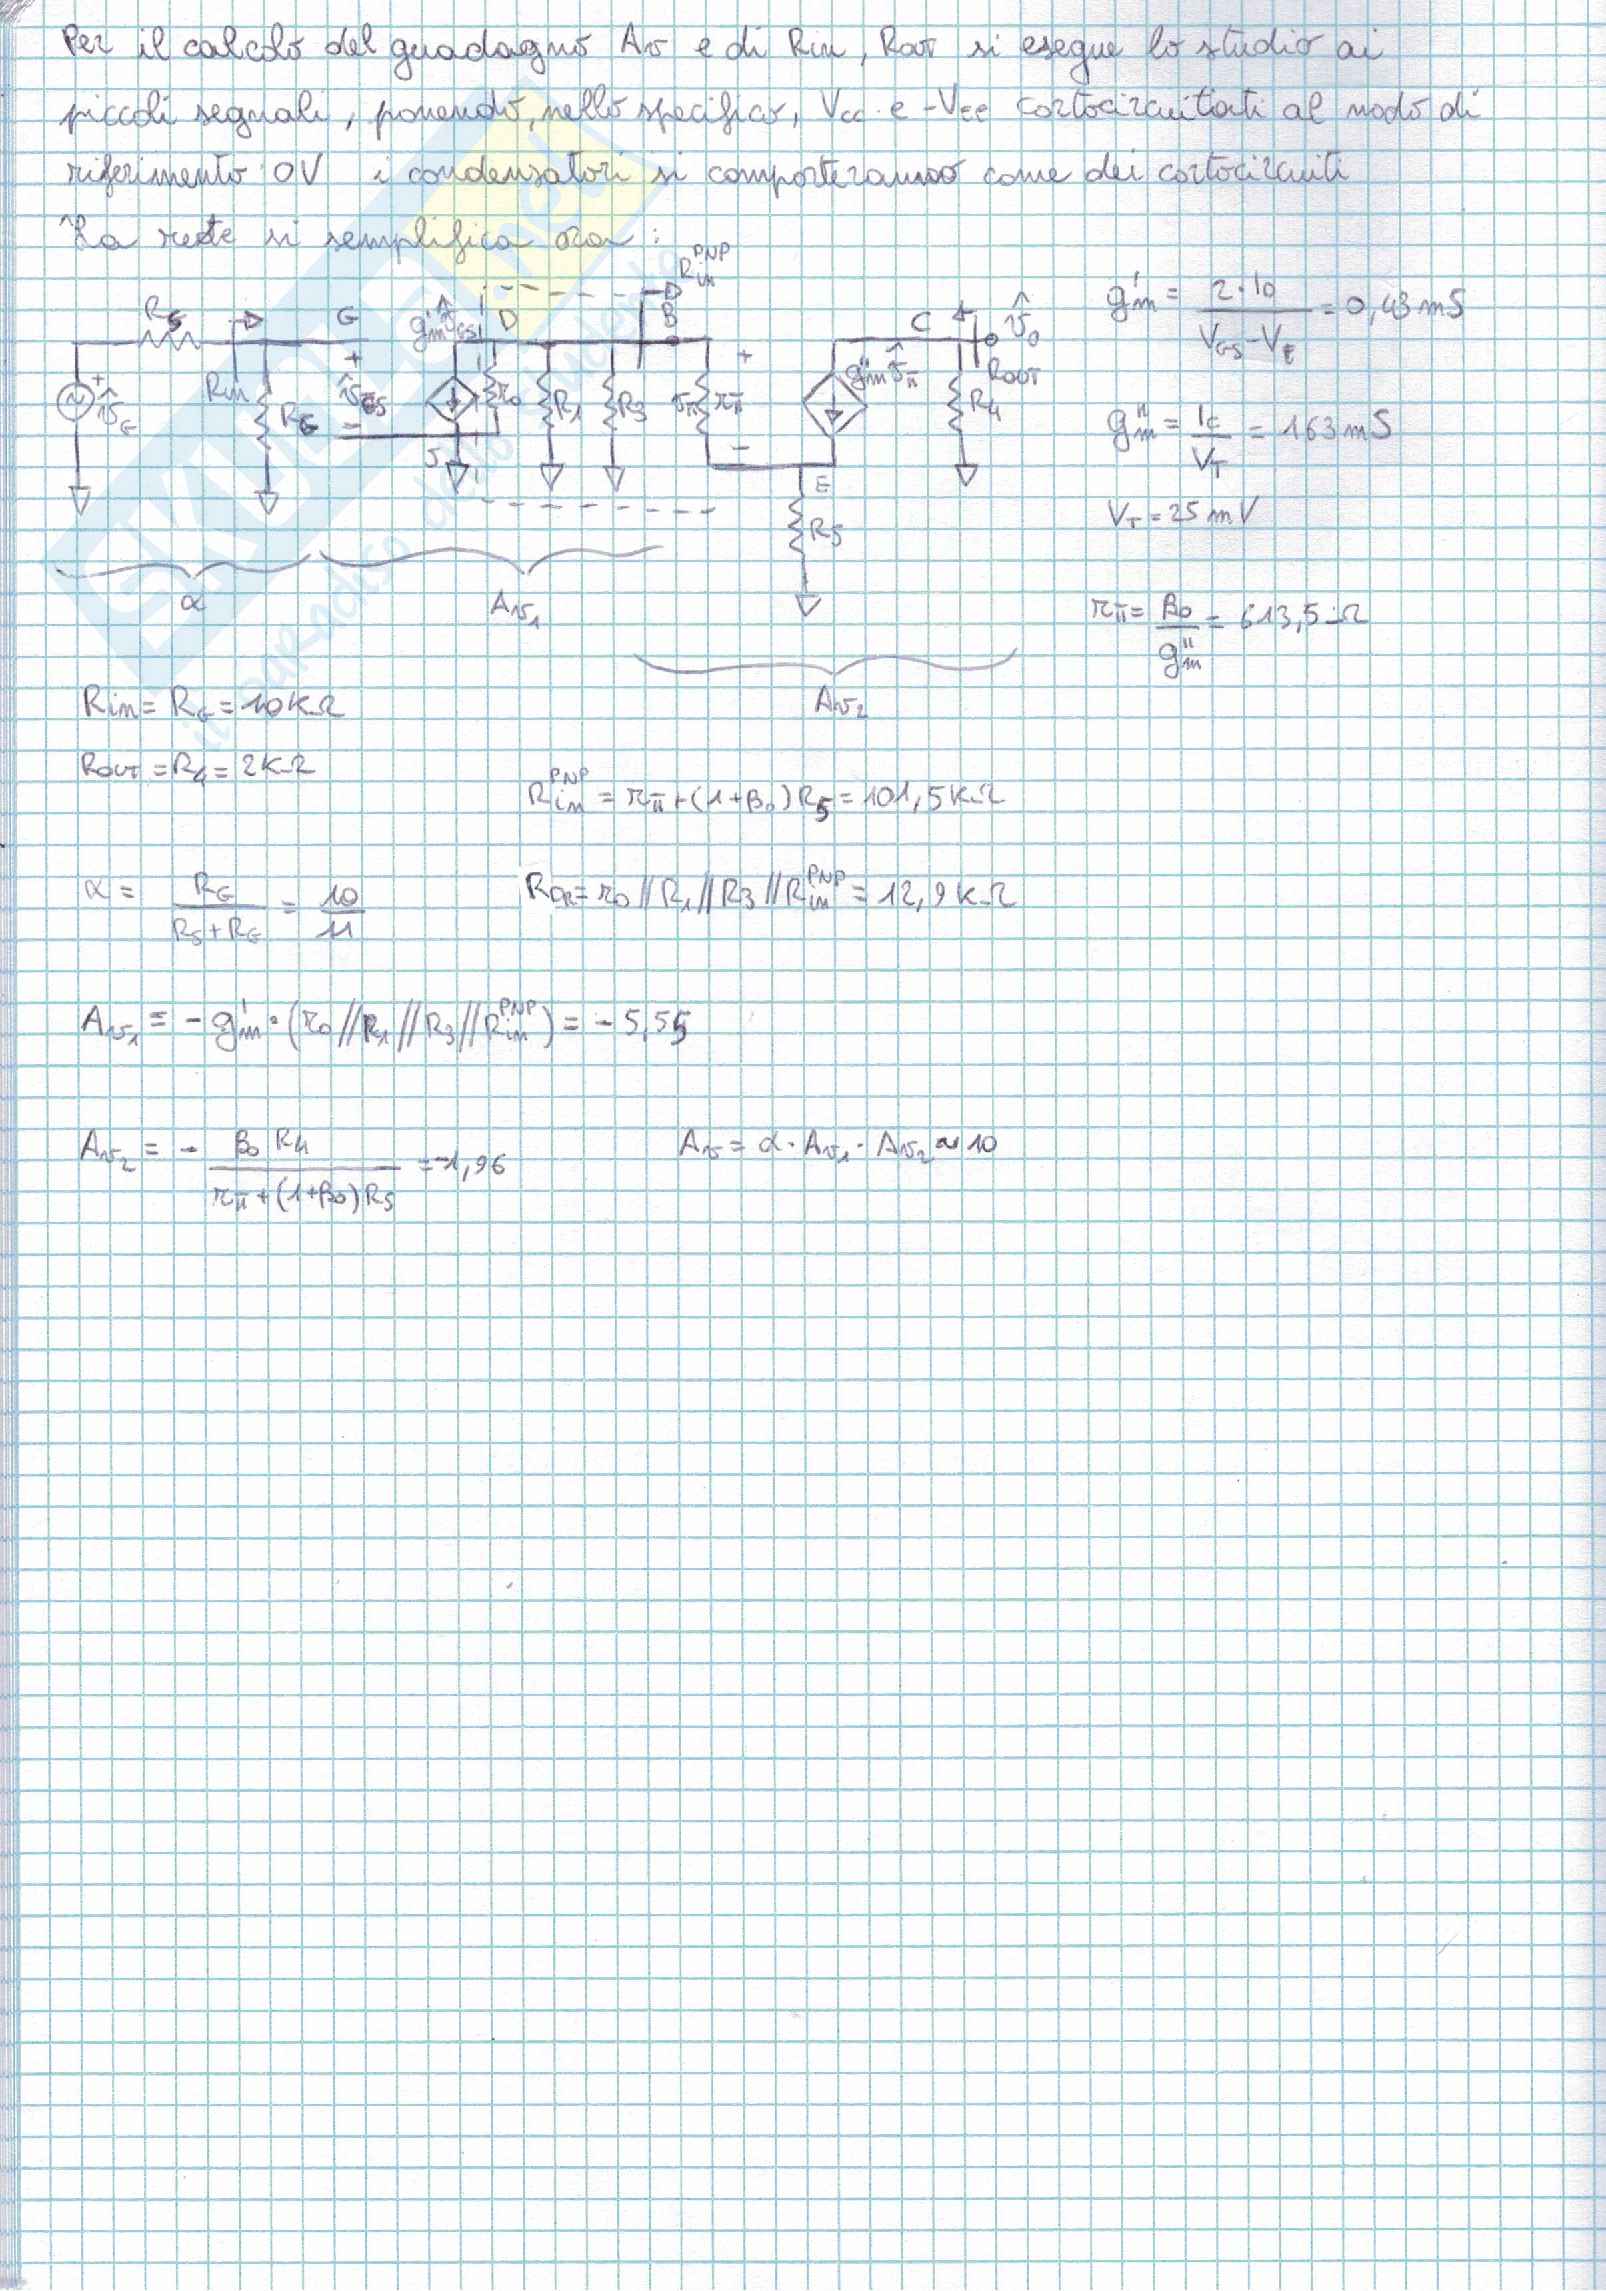 Per il calcolo del guadagno Av e di Rin, Rout si esegue lo studio ai
piccoli segnali, ponendo, nello specifico, Vcc e -VEE cortocircuitati al nodo di
riferimento 0V i condensatori si comporteranno come dei cortocircuiti
La rete si semplifica ora:
RS Rin RG v̂G G + v̂GS - g'm v̂GS D S r0 R1 R3 Rin^PNP B + vπ rπ - g''m v̂π E R5 C R4 Rout v̂o
α Av1 Av2
g'm = 2·ID / (VGS-Vt) = 0,43 mS
g''m = IC / VT = 163 mS
VT = 25 mV
rπ = β0 / g''m = 613,5 Ω
Rin = RG = 10KΩ
Rout = R4 = 2KΩ
Rin^PNP = rπ+(1+β0)R5 = 101,5KΩ
α = RG / (RS+RG) = 10/11
= r0//R1//R3//Rin^PNP = 12,9KΩ
Av1 = -g'm·(r0//R1//R3//Rin^PNP) = -5,55
Av2 = - β0 R4 / (rπ+(1+β0)R5) = -1,96
Av = α·Av1·Av2 ≈ 10
SKUOLA.net
il paradiso dello studente